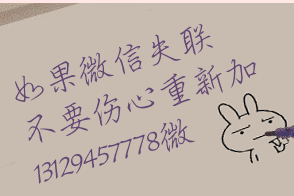 如果微信失联
不要伤心重新加
13129457778微